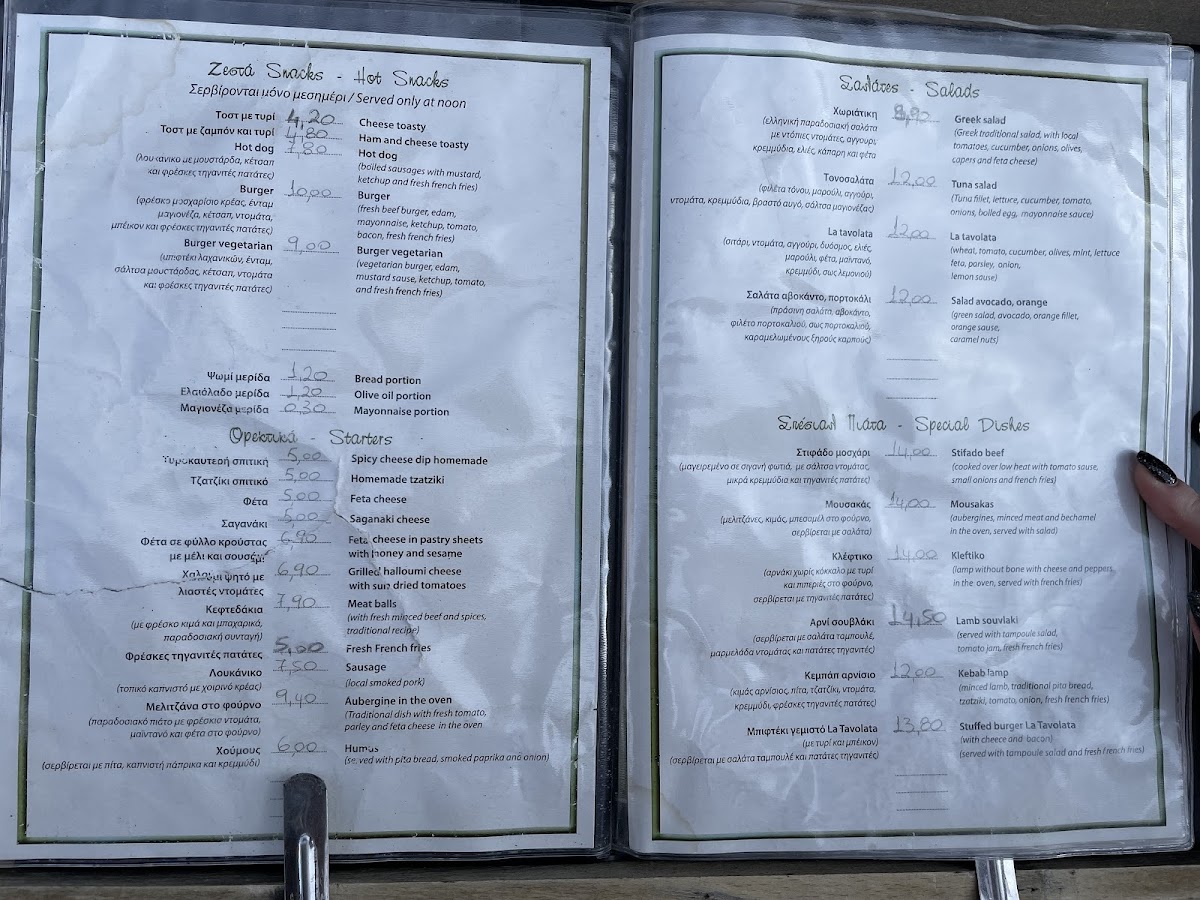 Ζεστά Snacks - Hot Snacks
Σερβίρονται μόνο μεσημέρι / Served only at noon
Τοστ με τυρί 4,20 Cheese toasty
Τοστ με ζαμπόν και τυρί 4,80 Ham and cheese toasty
Hot dog 7,80 Hot dog
(λουκάνικο με μουστάρδα, κέτσαπ (boiled sausages with mustard,
και φρέσκες τηγανιτές πατάτες) ketchup and fresh french fries)
Burger 10,00 Burger
(φρέσκο μοσχαρίσιο κρέας, ένταμ (fresh beef burger, edam,
μαγιονέζα, κέτσαπ, ντομάτα, mayonnaise, ketchup, tomato,
μπέικον και φρέσκες τηγανιτές πατάτες) bacon, fresh french fries)
Burger vegetarian 9,00 Burger vegetarian
(μπιφτέκι λαχανικών, ένταμ, (vegetarian burger, edam,
σάλτσα μουστάρδας, κέτσαπ, ντομάτα mustard sause, ketchup, tomato,
και φρέσκες τηγανιτές πατάτες) and fresh french fries)
Ψωμί μερίδα 1,20 Bread portion
Ελαιόλαδο μερίδα 1,20 Olive oil portion
Μαγιονέζα μερίδα 0,30 Mayonnaise portion
Ορεκτικά - Starters
Τυροκαυτερή σπιτική 5,00 Spicy cheese dip homemade
Τζατζίκι σπιτικό 5,00 Homemade tzatziki
Φέτα 5,00 Feta cheese
Σαγανάκι 5,00 Saganaki cheese
Φέτα σε φύλλο κρούστας 6,90 Feta cheese in pastry sheets
με μέλι και σουσάμι with honey and sesame
Χαλούμι ψητό με 6,90 Grilled halloumi cheese
λιαστές ντομάτες with sun dried tomatoes
Κεφτεδάκια 7,90 Meat balls
(με φρέσκο κιμά και μπαχαρικά, (with fresh minced beef and spices,
παραδοσιακή συνταγή) traditional recipe)
Φρέσκες τηγανιτές πατάτες 5,00 Fresh French fries
Λουκάνικο 7,50 Sausage
(τοπικό καπνιστό με χοιρινό κρέας) (local smoked pork)
Μελιτζάνα στο φούρνο 9,40 Aubergine in the oven
(παραδοσιακό πιάτο με φρέσκια ντομάτα, (Traditional dish with fresh tomato,
μαϊντανό και φέτα στο φούρνο) parley and feta cheese in the oven
Χούμους 6,00 Humus
(σερβίρεται με πίτα, καπνιστή πάπρικα και κρεμμύδι) (served with pita bread, smoked paprika and onion)
Σαλάτες - Salads
Χωριάτικη 8,90 Greek salad
(ελληνική παραδοσιακή σαλάτα (Greek traditional salad, with local
με ντόπιες ντομάτες, αγγουρι, tomatoes, cucumber, onions, olives,
κρεμμύδια, ελιές, κάπαρη και φέτα capers and feta cheese)
Τονοσαλάτα 12,00 Tuna salad
(φιλέτα τόνου, μαρούλι, αγγούρι, (Tuna fillet, lettuce, cucumber, tomato,
ντομάτα, κρεμμύδια, βραστό αυγό, σάλτσα μαγιονέζας) onions, boiled egg, mayonnaise sauce)
La tavolata 12,00 La tavolata
(σιτάρι, ντομάτα, αγγούρι, δυόσμος, ελιές, (wheat, tomato, cucumber, olives, mint, lettuce
μαρούλι, φέτα, μαϊντανό, feta, parsley, onion,
κρεμμύδι, σως λεμονιού) lemon sause)
Σαλάτα αβοκάντο, πορτοκάλι 12,00 Salad avocado, orange
(πράσινη σαλάτα, αβοκάντο, (green salad, avocado, orange fillet,
φιλέτο πορτοκαλιού, σως πορτοκαλιού, orange sause,
καραμελωμένους ξηρούς καρπούς) caramel nuts)
Σπέσιαλ Πιάτα - Special Dishes
Στιφάδο μοσχάρι 14,00 Stifado beef
(μαγειρεμένο σε σιγανή φωτιά, με σάλτσα ντομάτας, (cooked over low heat with tomato sause,
μικρά κρεμμύδια και τηγανιτές πατάτες) small onions and french fries)
Μουσακάς 14,00 Mousakas
(μελιτζάνες, κιμάς, μπεσαμέλ στο φούρνο, (aubergines, minced meat and bechamel
σερβίρεται με σαλάτα) in the oven, served with salad)
Κλέφτικο 14,00 Kleftiko
(αρνάκι χωρίς κόκκαλο με τυρί (lamp without bone with cheese and peppers
και πιπεριές στο φούρνο, in the oven, served with french fries)
σερβίρεται με τηγανιτές πατάτες)
Αρνί σουβλάκι 14,50 Lamb souvlaki
(σερβίρεται με σαλάτα ταμπουλέ, (served with tampoule salad,
μαρμελάδα ντομάτας και πατάτες τηγανιτές) tomato jam, fresh french fries)
Κεμπάπ αρνίσιο 12,00 Kebab lamp
(κιμάς αρνίσιος, πίτα, τζατζίκι, ντομάτα, (minced lamb, traditional pita bread,
κρεμμύδι, φρέσκες τηγανιτές πατάτες) tzatziki, tomato, onion, fresh french fries)
Μπιφτέκι γεμιστό La Tavolata 13,80 Stuffed burger La Tavolata
(με τυρί και μπέικον) (with cheece and bacon)
(σερβίρεται με σαλάτα ταμπουλέ και πατάτες τηγανιτές) (served with tampoule salad and fresh french fries)